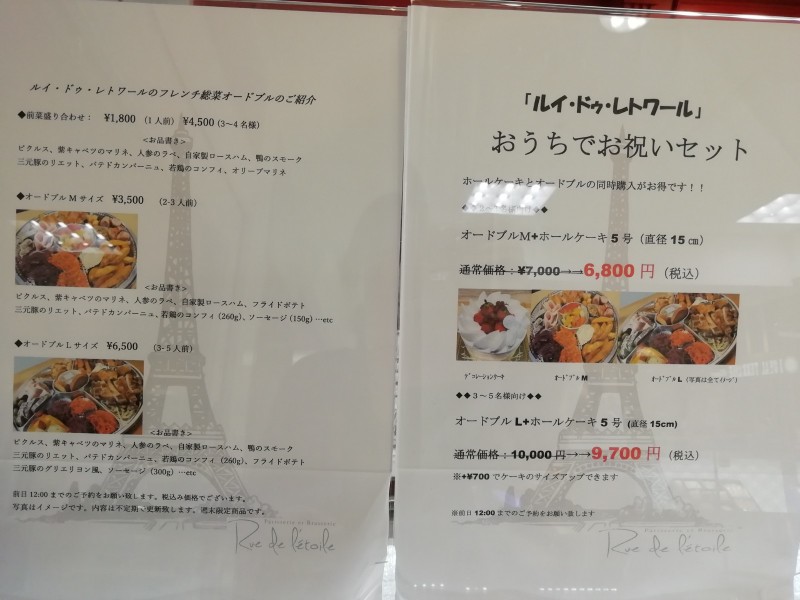 ルイ・ドゥ・レトワールのフレンチ総菜オードブルのご紹介
◆前菜盛り合わせ： ¥1,800 （1人前） ¥4,500（3～4名様）
<お品書き>
ピクルス、紫キャベツのマリネ、人参のラペ、自家製ロースハム、鴨のスモーク
三元豚のリエット、パテドカンパーニュ、若鶏のコンフィ、オリーブマリネ
◆オードブルMサイズ ¥3,500 （2-3人前）
<お品書き>
ピクルス、紫キャベツのマリネ、人参のラペ、自家製ロースハム、フライドポテト
三元豚のリエット、パテドカンパーニュ、若鶏のコンフィ（260g）、ソーセージ（150g）…etc
◆オードブルLサイズ ¥6,500 （3-5人前）
<お品書き>
ピクルス、紫キャベツのマリネ、人参のラペ、自家製ロースハム、鴨のスモーク
三元豚のリエット、パテドカンパーニュ、若鶏のコンフィ（260g）、フライドポテト
三元豚のグリエリヨン風、ソーセージ（300g）…etc
前日12:00までのご予約をお願い致します。税込み価格でございます。
写真はイメージです。内容は不定期で更新致します。週末限定商品です。
Rue de l'étoile
「ルイ・ドゥ・レトワール」
おうちでお祝いセット
ホールケーキとオードブルの同時購入がお得です！！
オードブルM+ホールケーキ5号（直径15㎝）
通常価格：¥7,000→→6,800円（税込）
デコレーションケーキ オードブルM オードブルL（写真は全てイメージ）
◆◆3～5名様向け◆◆
オードブルL+ホールケーキ5号（直径15cm）
通常価格：10,000円→→9,700円（税込）
※+¥700でケーキのサイズアップできます
前日12:00までのご予約をお願い致します
Rue de l'étoile